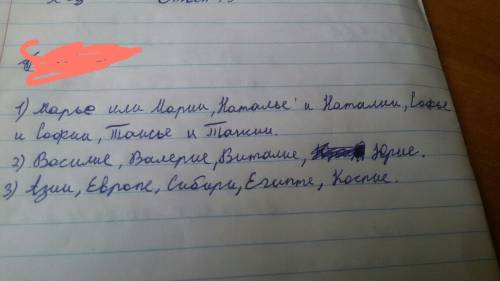 1) Марье или Марии, Наталье и Наталии, Софье
и Софии, Таисье и Таисии.
2) Василие, Валерие, Виталие, Юрие.
3) Азии, Европе, Сибири, Египте, Каспие.